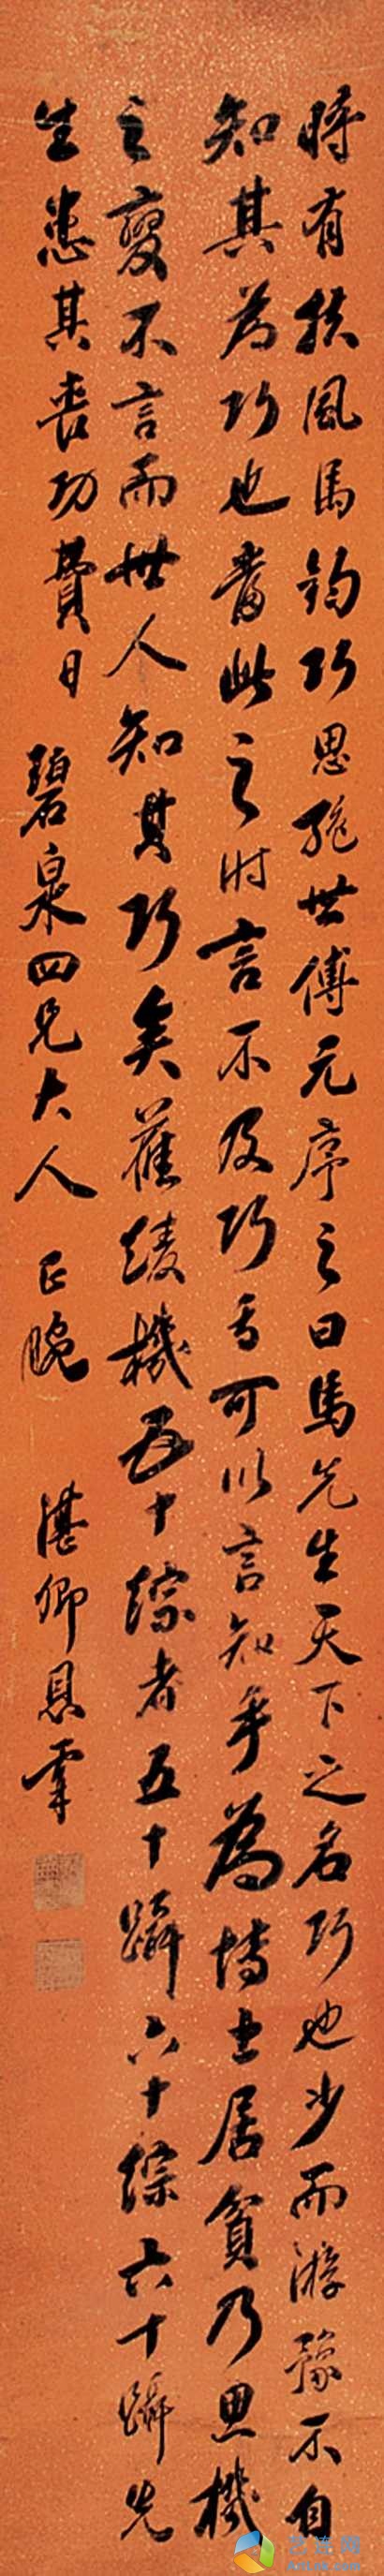 時有扶風馬鈞巧思絕世傅元序之曰馬先生天下之名巧也少而游豫不自
知其為巧也當此之時言不及巧焉可以言知乎為博士居貧乃思機
之變不言而世人知其巧矣舊綾機五十綜者五十躡六十綜六十躡先
生患其喪功費日
碧泉四兄大人 正腕
湛卿恩霖
艺连网